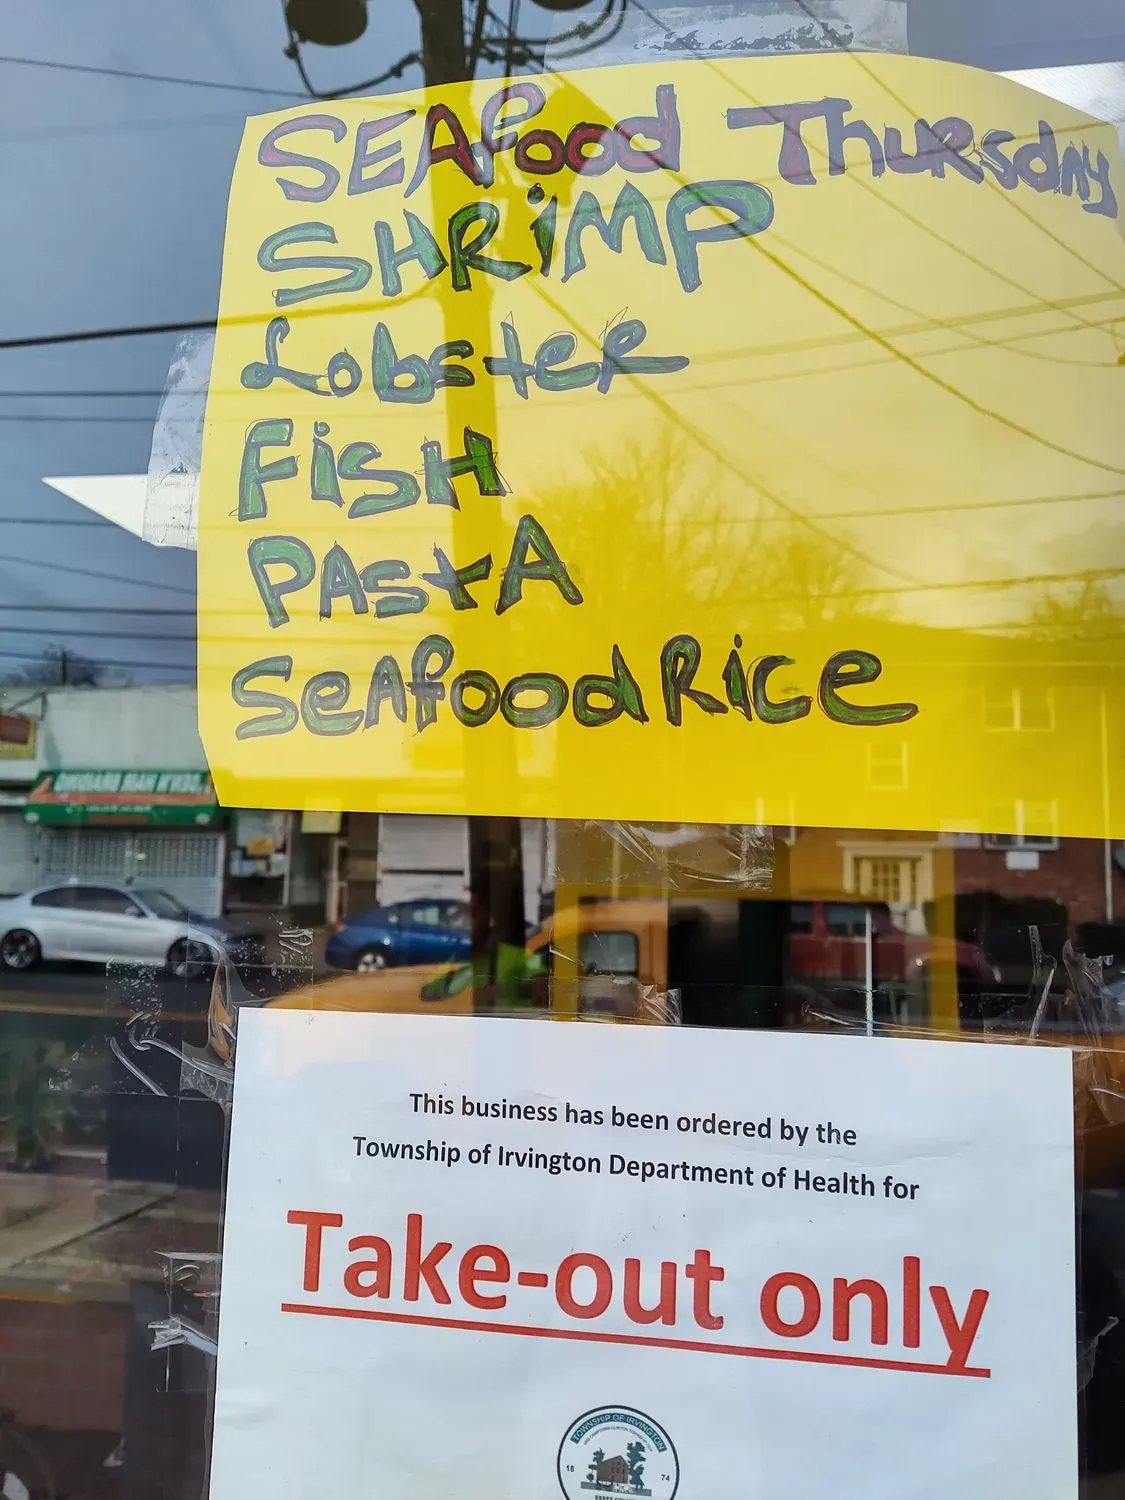 SEAfood Thursday
SHRiMP
Lobster
FisH
PAstA
SeAfood Rice
This business has been ordered by the
Township of Irvington Department of Health for
Take-out only
TOWNSHIP OF IRVINGTON
18 74